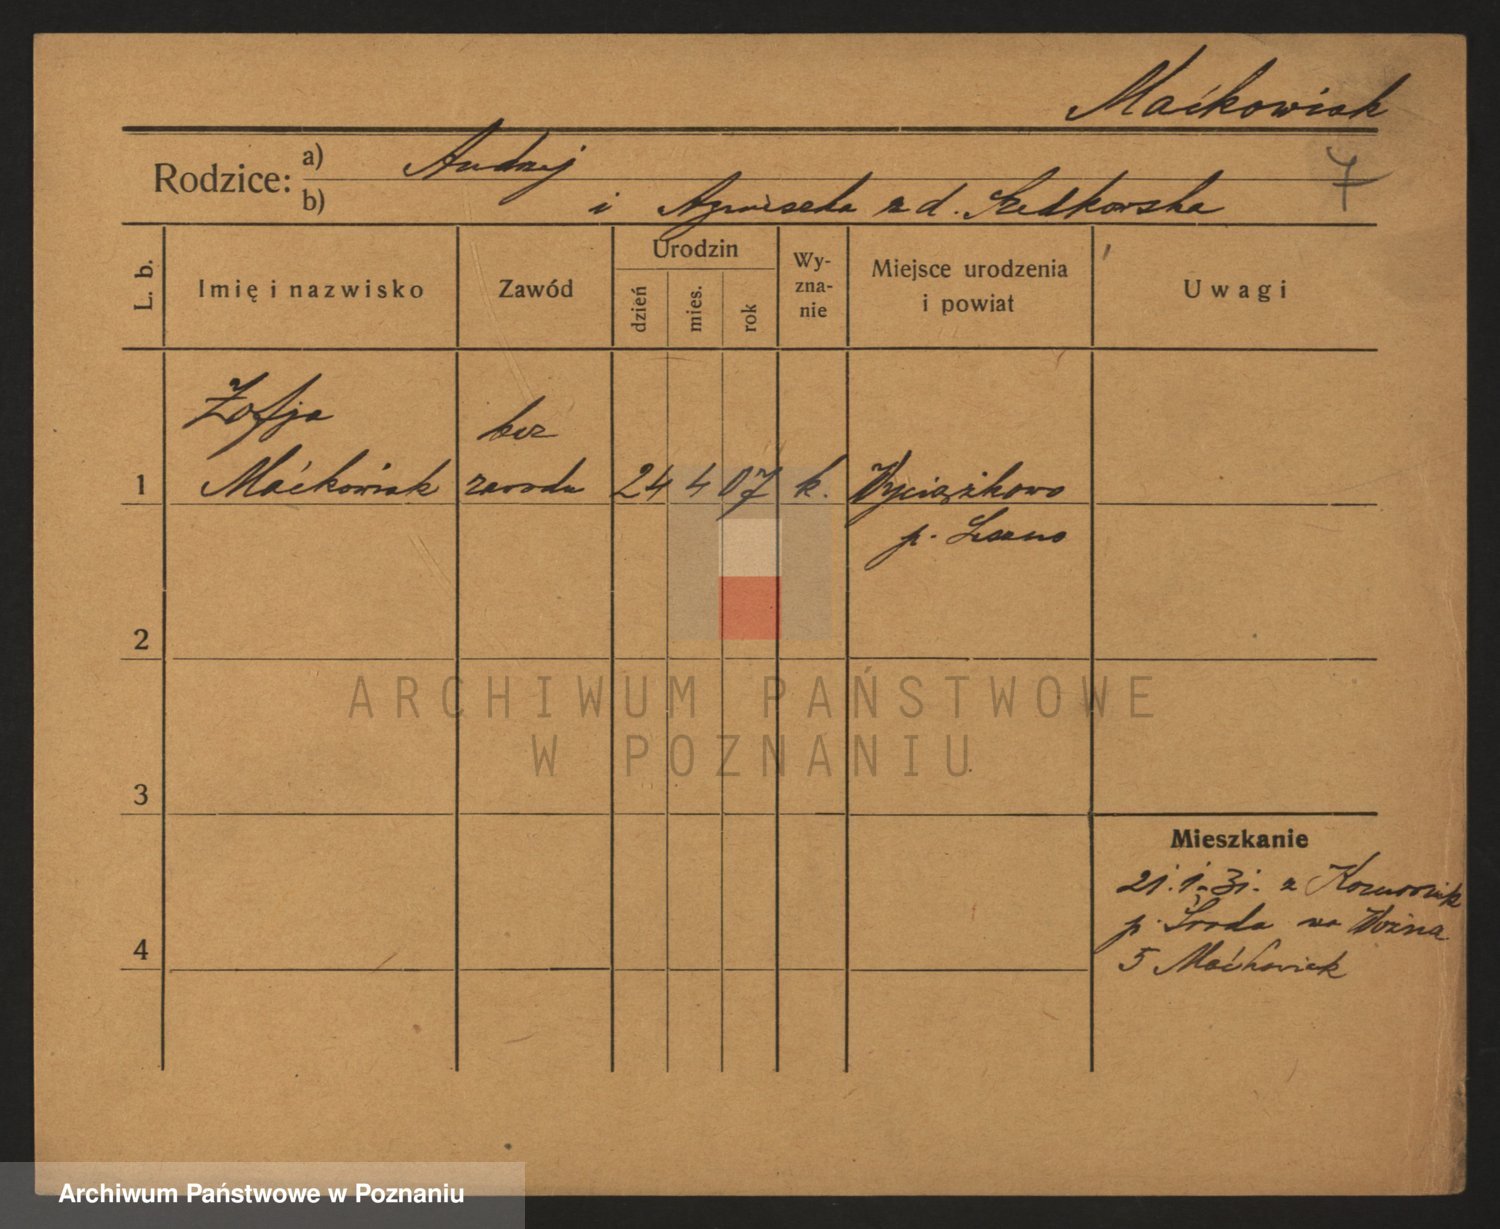 Maćkowiak
7
Rodzice: a) Andrzej
b) i Agnieszka z d. Szedkowska
L. b.
Imię i nazwisko
Zawód
Urodzin
dzień
mies.
rok
Wy-
zna-
nie
Miejsce urodzenia
i powiat
Uwagi
Zofja
bez
1 Maćkowiak zawodu 24 4 07 k. Wyciążkowo
p. Leszno
2
3
4
ARCHIWUM PAŃSTWOWE
W POZNANIU
Mieszkanie
21.1.31. z
p. Środa na Woźna
5 Maćkowiak
Archiwum Państwowe w Poznaniu